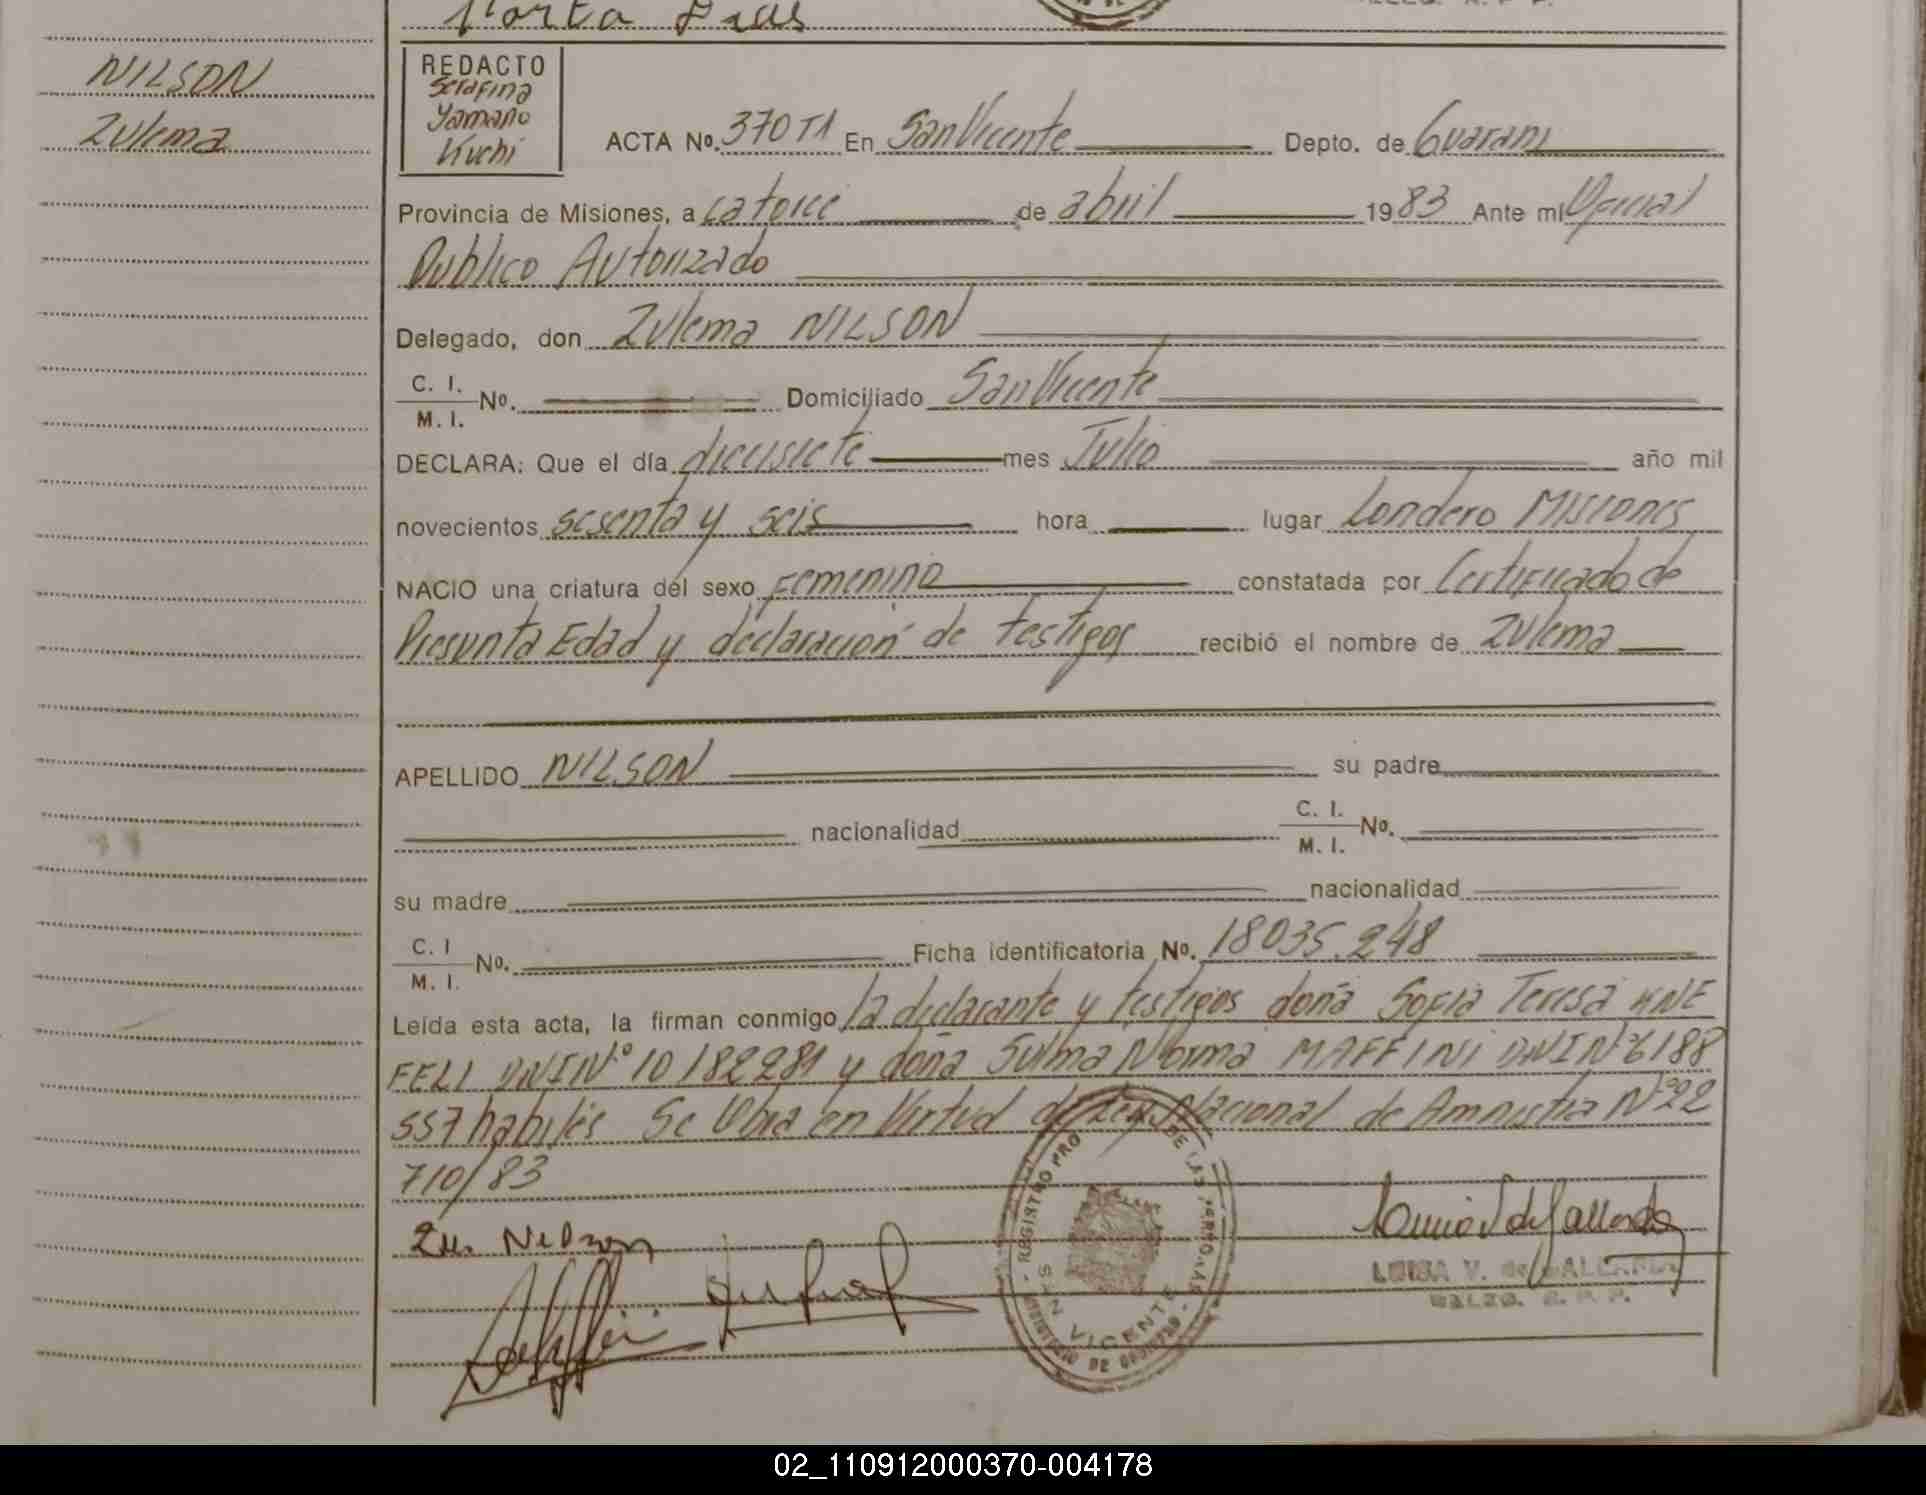 NILSON
Zulema
REDACTO
Serafina
Yamaño
Kuchi
ACTA Nº. 370 T1 En San Vicente Depto. de Guarani
Provincia de Misiones, a catorce de abril 1983 Ante mí Oficial
Publico Autorizado
Delegado, don Zulema NILSON
C. I. M. I. Nº. Domiciliado San Vicente
DECLARA: Que el día diecisiete mes Julio año mil
novecientos sesenta y seis hora lugar Londero Misiones
NACIO una criatura del sexo Femenino constatada por Certificado de
Presunta Edad y declaración de testigos recibió el nombre de Zulema
APELLIDO NILSON su padre
nacionalidad C. I. M. I. Nº.
su madre nacionalidad
C. I M. I. Nº. Ficha identificatoria Nº. 18035.248
Leída esta acta, la firman conmigo la declarante y testigos doña Sofia Teresa KNE
FELI DNI Nº 10 182281 y doña Sulma Norma MAFFINI DNI Nº 6188
557 habiles Se Obra en Virtud de Ley Nacional de Amnistia Nº 22
710/83
Zu. Nelson
REGISTRO PRO DE LAS PERSONAS
SAN VICENTE
MINISTERIO DE GOBIERNO
LUISA V. de GALLARDO
02_110912000370-004178